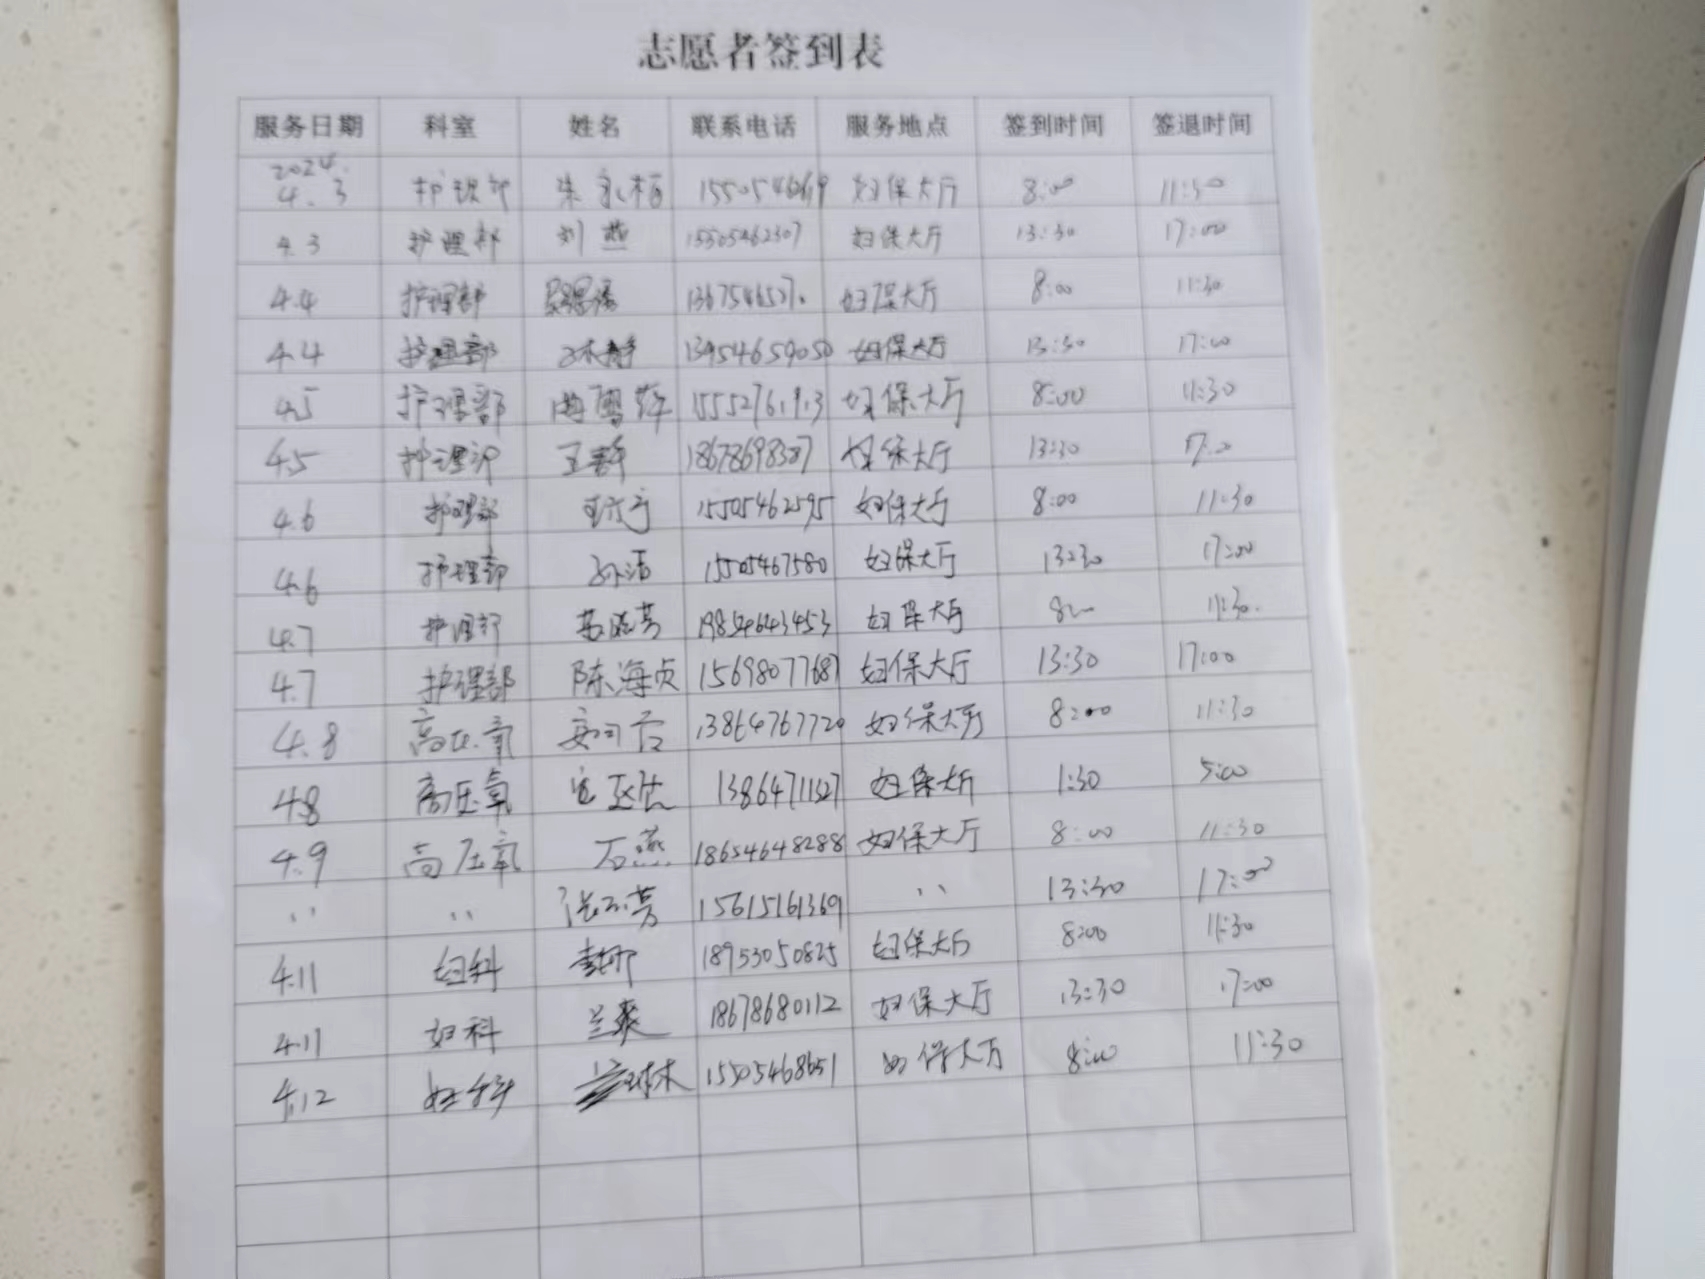 志愿者签到表
服务日期 科室 姓名 联系电话 服务地点 签到时间 签退时间
2024.
4.3 护理部 妇保大厅 8:00 11:30
4.3 护理部 刘燕 15505462307 妇保大厅 13:30 17:00
4.4 护理部 妇保大厅 8:00 11:30
4.4 护理部 13954659050 妇保大厅 13:30 17:00
4.5 护理部 妇保大厅 8:00 11:30
4.5 护理部 王静 18678698307 妇保大厅 13:30
4.6 护理部 15505462595 妇保大厅 8:00 11:30
4.6 护理部 孙洁 15505467580 妇保大厅 13:30 17:00
4.7 护理部 19854643453 妇保大厅 11:30
4.7 护理部 陈海贞 15698077687 妇保大厅 13:30 17:00
4.8 高压氧 13864767720 妇保大厅 8:00 11:30
4.8 高压氧 13864711327 妇保大厅 1:30 5:00
4.9 高压氧 石燕 18654648288 妇保大厅 8:00 11:30
〃 〃 15615161369 〃 13:30 17:00
4.11 妇科 18953050825 妇保大厅 8:00 11:30
4.11 妇科 兰爽 18678680112 妇保大厅 13:30 17:00
4.12 妇科 15505468651 妇保大厅 8:00 11:30